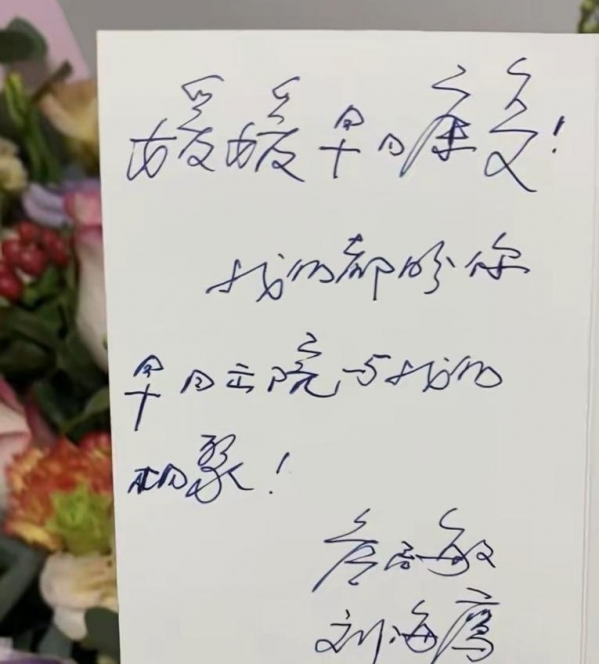 媛媛早日康复！
我们都盼你
早日出院与我们
相聚！
詹敏
刘海鹰